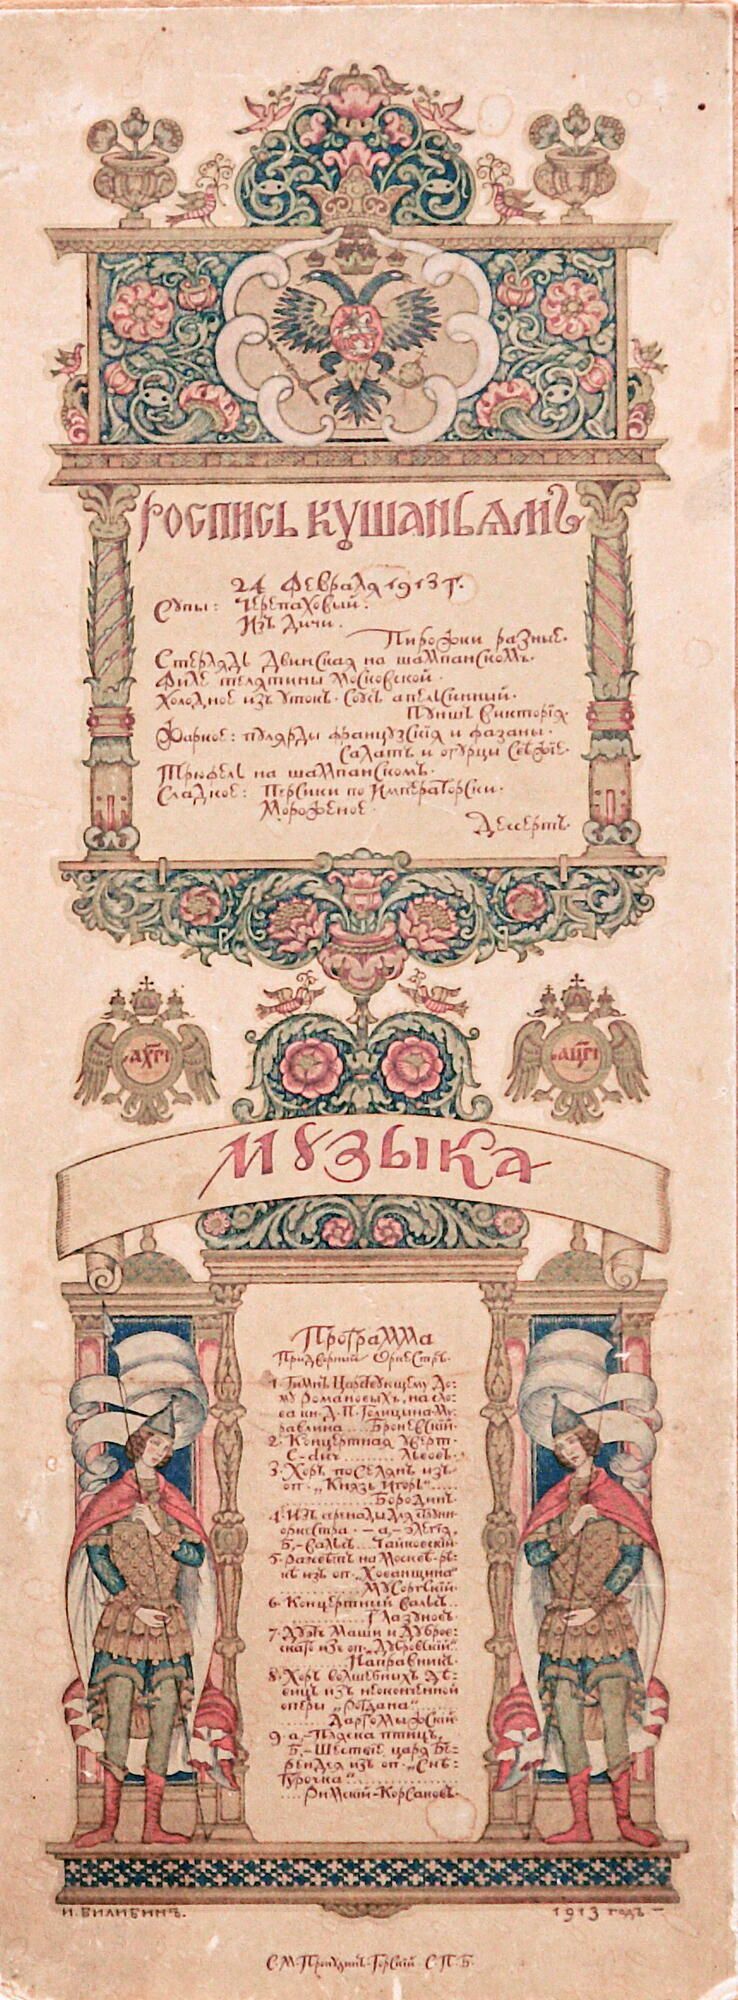 Роспись кушаньямъ
24 Февраля 1913 г.
Супы: Черепаховый.
Изъ дичи.
Пирожки разные.
Стерлядь Двинская на шампанскомъ.
Филе телятины Московской.
Холодное изъ утокъ. Соусъ апельсинный.
Пуншъ Викторія.
Жаркое: пулярды французскія и фазаны.
Салатъ и огурцы свѣжіе.
Трюфель на шампанскомъ.
Сладкое: Персики по Императорски.
Мороженое.
Дессертъ.
҂АХГІ ҂АЦГІ
Музыка
Программа
Придворный Оркестръ.
1. Гимнъ Царствующему До-
му Романовыхъ, на сло-
ва кн. Д. П. Голицына-Му-
равлина... Броневскій.
2. Концертная уверт.
C-dur ......... Львовъ.
3. Хоръ поселянъ изъ
оп. „Князь Игорь“.....
............ Бородинъ.
4. Изъ серенады для струн.
оркестра. – а,- Элегія,
Б,- Вальсъ... Чайковскій.
5. Разсвѣтъ на Москвѣ-рѣ-
кѣ изъ оп. „Хованщина“
............ Мусоргскій.
6. Концертный вальсъ..
............ Глазуновъ.
7. Дуэтъ Маши и Дубров-
скаго изъ оп. „Дубровскій“.
......... Направникъ.
8. Хоръ волшебныхъ дѣ-
вицъ изъ неоконченной
оперы „Рогдана“......
...... Даргомыжскій.
9. а,- Пляска птицъ,
Б,- Шествіе царя Бе-
рендея изъ оп. „Снѣ-
гурочка“............
.... Римскій-Корсаковъ.
И. БИЛИБИНЪ. 1913 годъ –
С. М. Прокудинъ-Горскій С. П. Б.